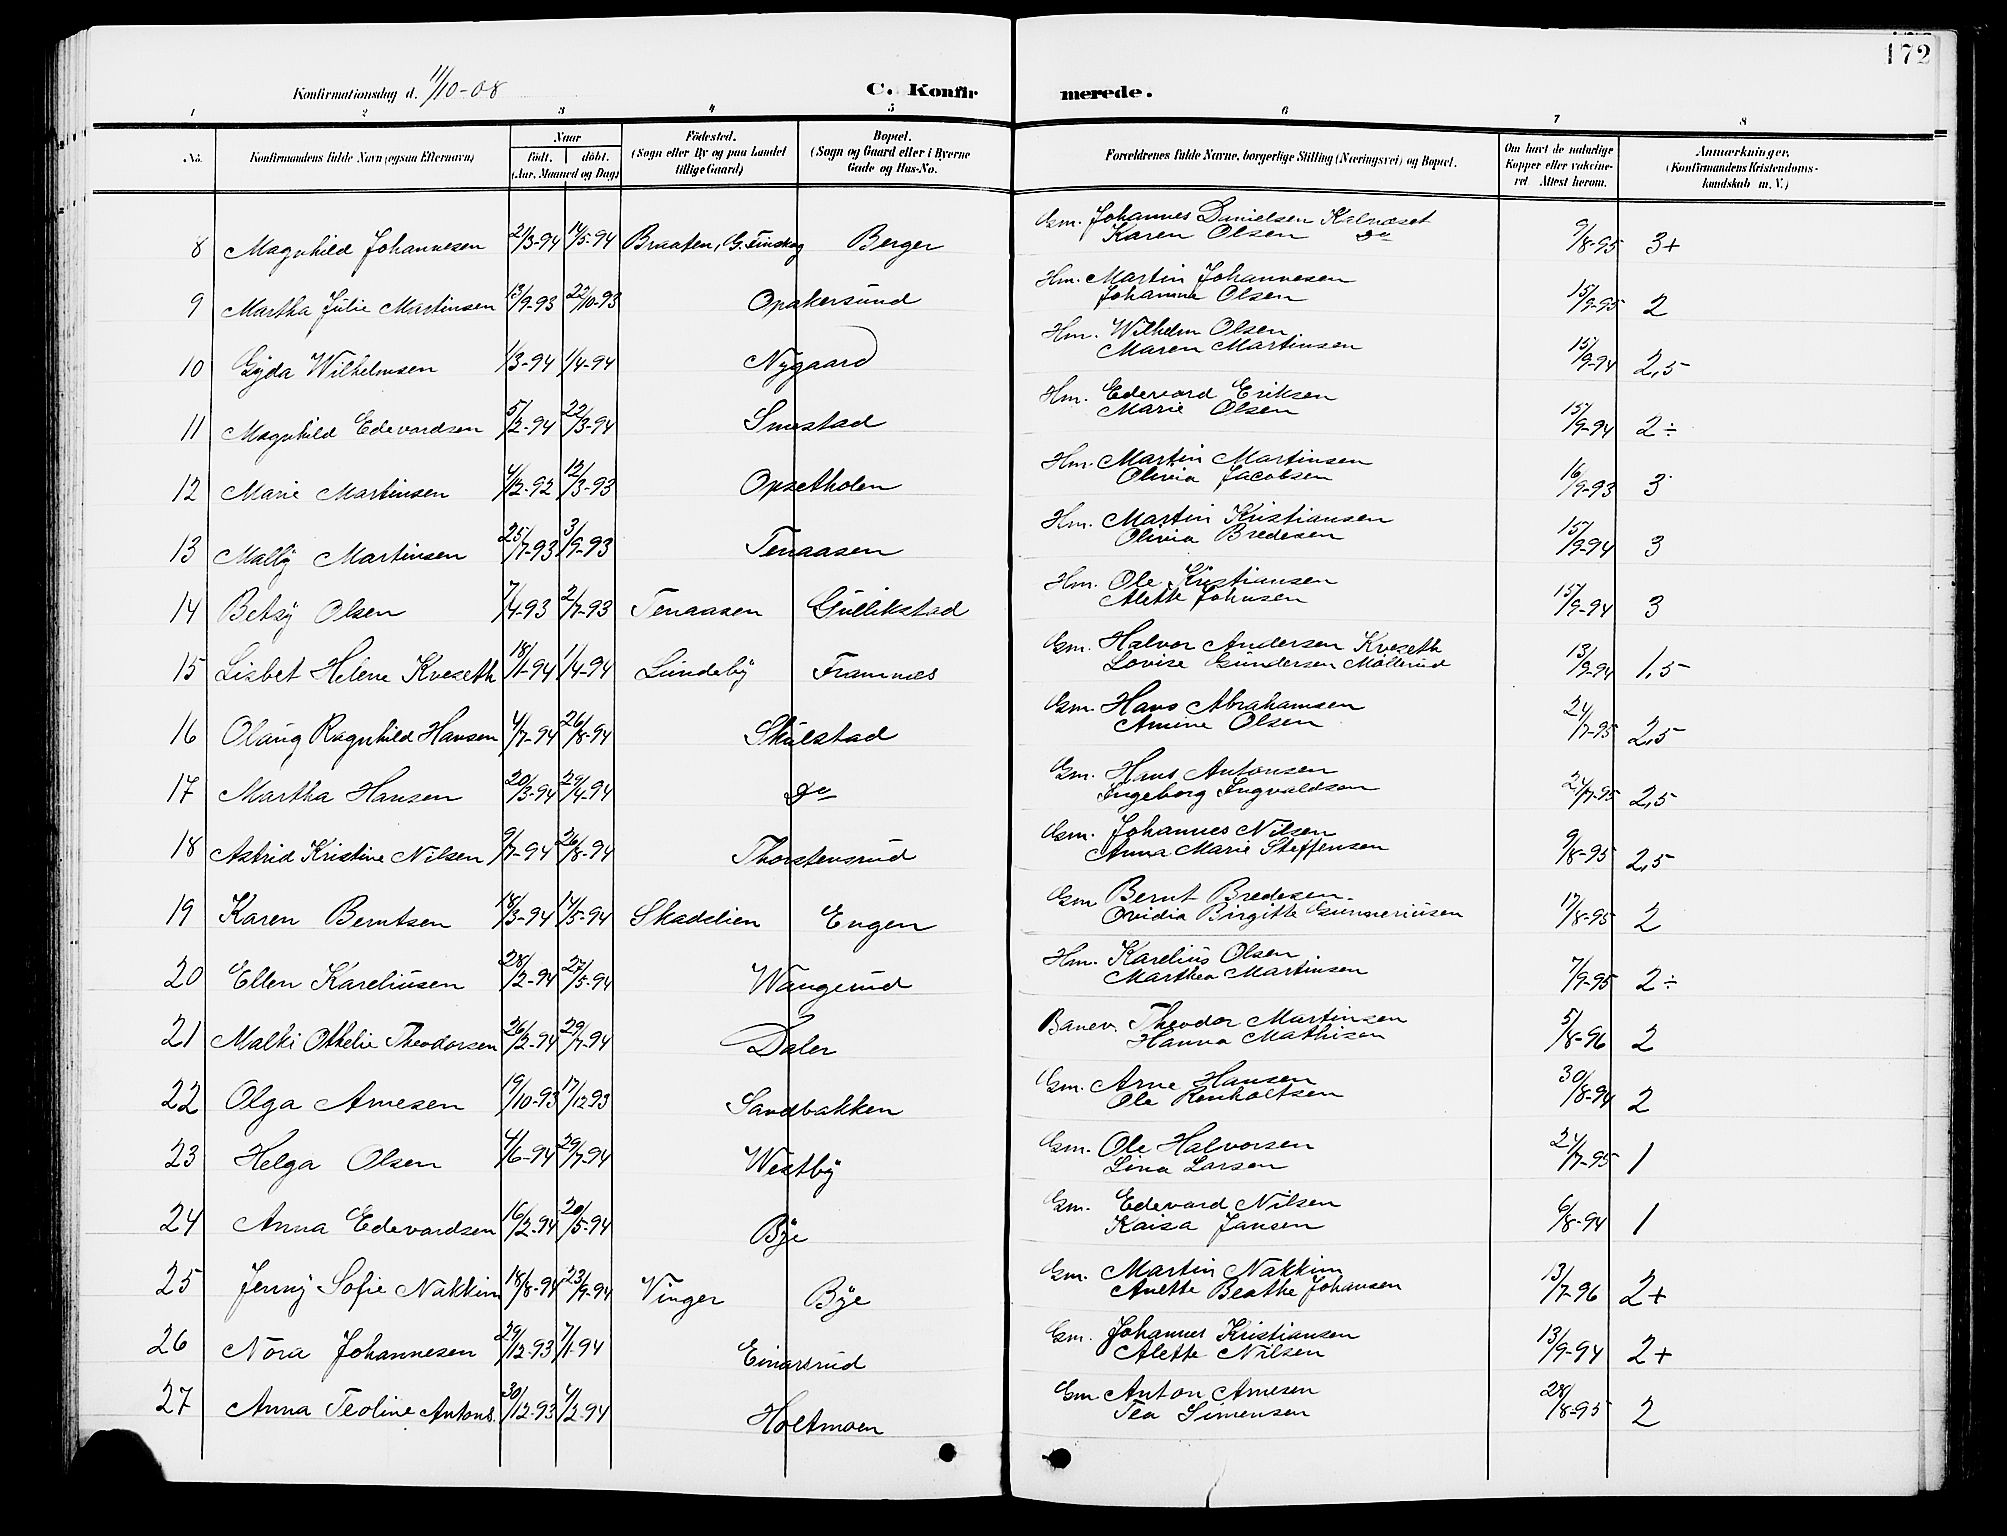 172
Konfirmationsdag d. 11/10-08 C. Konfirmerede.
1 2 3 4 5 6 7 8
No. Konfirmandens fulde Navn (ogsaa Efternavn) Naar födt. döbt. (Aar, Maaned og Dag) Födested. (Sogn eller By og paa Landet tillige Gaard) Bopæl. (Sogn og Gaard eller i Byerne Gade og Hus-No. Forældrenes fulde Navne, borgerlige Stilling (Næringsvei) og Bopæl. Om havt de naturlige Kopper eller vakcineret. Attest herom. Anmærkninger, (Konfirmandens Kristendomskundskab m. V.)
8 Magnhild Johannesen 21/3-94 14/5-94 Braaten, G. Finskog Berger Gm. Johannes Danielsen Kalnæset Karen Olsen do 9/8-95 3+
9 Martha Julie Martinsen 13/9-93 22/10-93 Opakersund Hm. Martin Johannesen Johanna Olsen 15/9-95 2
10 Gyda Wilhelmsen 1/3-94 1/4-94 Nygaard Hm. Wilhelm Olsen Maren Martinsen 15/9-94 2,5
11 Magnhild Edevardsen 5/2-94 22/3-94 Smestad Hm. Edevard Eriksen Marie Olsen 15/9-94 2÷
12 Marie Martinsen 4/12-92 12/3-93 Opsetholen Hm. Martin Martinsen Olivia Jacobsen 16/9-93 3
13 Mally Martinsen 25/7-93 3/9-93 Tenaasen Hm. Martin Kristiansen Olivia Bredesen 15/9-94 3
14 Betsy Olsen 7/4-93 2/7-93 Tenaasen Gullikstad Hm. Ole Kristiansen Alette Johnsen 15/9-94 3
15 Lisbet Helene Kveseth 18/1-94 1/4-94 Lundeby Framnes Gm. Halvor Andersen Kveseth Lovise Gundersen Möllerud 13/9-94 1,5
16 Olaug Ragnhild Hansen 4/7-94 26/8-94 Skulstad Gm. Hans Abrahamsen Amine Olsen 24/7-95 2,5
17 Martha Hansen 20/3-94 29/4-94 do Gm. Hans Antonsen Ingeborg Ingvaldsen 24/7-95 2,5
18 Astrid Kristine Nilsen 9/7-94 26/8-94 Thorstensrud Gm. Johannes Nilsen Anna Marie Steffensen 9/8-95 2,5
19 Karen Berntsen 18/3-94 14/5-94 Skadslien Engen Gm Bernt Bredesen Ovidia Birgitte Gunneriusen 17/8-95 2
20 Ellen Kareliusen 28/2-94 27/5-94 Wangerud Hm. Karelius Olsen Marthea Martinsen 7/9-95 2÷
21 Malki Othelie Theodorsen 26/2-94 29/7-94 Daler Banev. Theodor Martinsen Hanna Mathisen 5/8-96 2
22 Olga Arnesen 19/10-93 17/12-93 Sandbakken Gm. Arne Hansen Ole Renholtsen 30/8-94 2
23 Helga Olsen 4/6-94 29/7-94 Westby Gm. Ole Halvorsen Lina Larsen 24/7-95 1
24 Anna Edevardsen 16/2-94 20/5-94 Bye Gm. Edevard Nilsen Kaisa Jansen 6/8-94 1
25 Jenny Sofie Nakkim 18/8-94 23/9-94 Vinger Bye Gm. Martin Nakkim Anette Beathe Johansen 13/7-96 2+
26 Nora Johannesen 29/12-93 7/1-94 Einarsrud Gm. Johannes Kristiansen Alette Nilsen 13/9-94 2+
27 Anna Teoline Antons. 30/12-93 4/2-94 Holtmoen Gm Anton Arnesen Tea Simensen 28/8-95 2